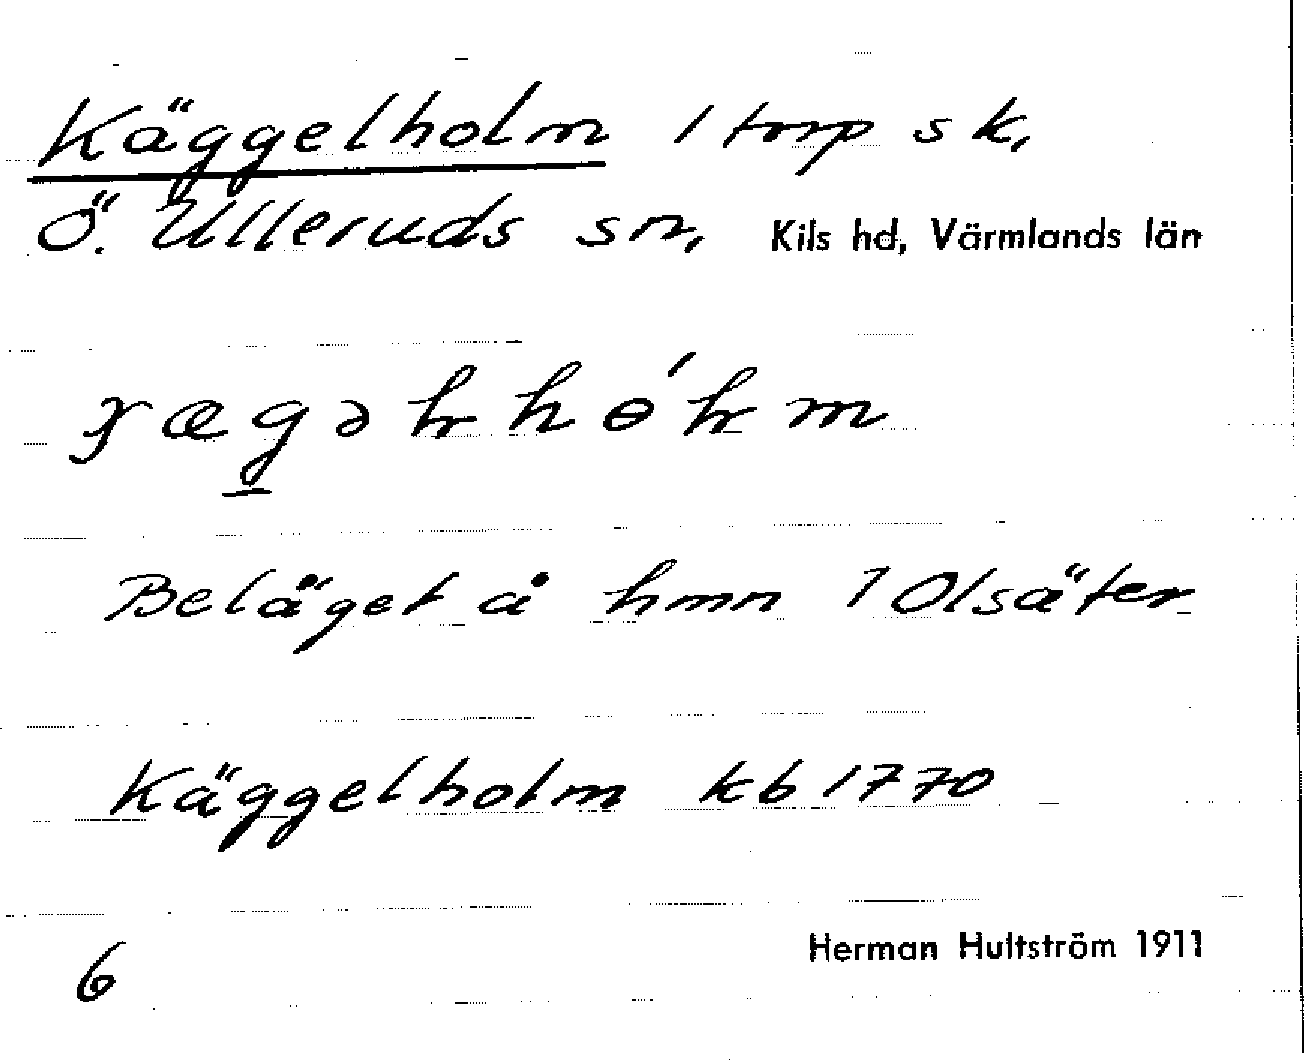 Käggelholm 1 torp sk,
Ö. Ulleruds sn, Kils hd, Värmlands län
Beläget å hmn 1 Olsäter
Käggelholm kb 1770
Herman Hultström 1911
6